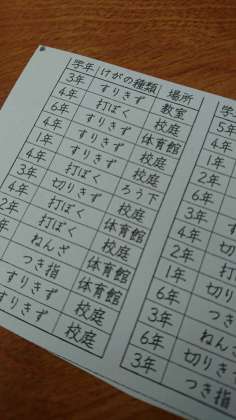 学年 けがの種類 場所
3年 すりきず 教室
4年 打ぼく 校庭
6年 すりきず 体育館
4年 すりきず 校庭
1年 すりきず 校庭
4年 打ぼく ろう下
3年 切りきず 校庭
4年 打ぼく 体育館
2年 打ぼく 校庭
年 ねんざ 体育館
つき指 体育館
すりきず 校庭
すりきず 校庭
学年
5年
4年
1年
2年
6年
3年 す
4年 切り
2年 打
1年
6年 切りき
3年 つ
6年 ねんざ
3年 切りき
つき指